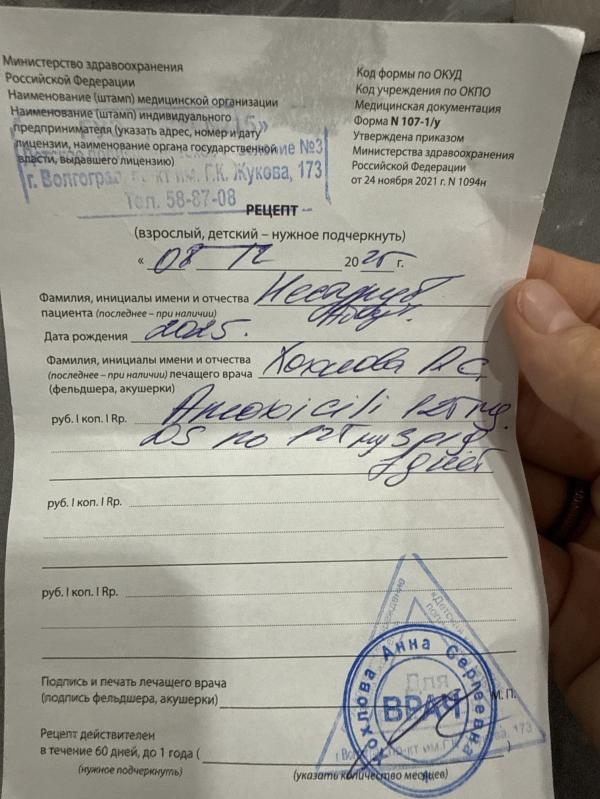 Министерство здравоохранения
Российской Федерации
Наименование (штамп) медицинской организации
Наименование (штамп) индивидуального
предпринимателя (указать адрес, номер и дату
лицензии, наименование органа государственной
власти, выдавшего лицензию)
№3
г. Волгоград, пр-кт им. Г.К. Жукова, 173
Тел. 58-87-08
Код формы по ОКУД
Код учреждения по ОКПО
Медицинская документация
Форма N 107-1/у
Утверждена приказом
Министерства здравоохранения
Российской Федерации
от 24 ноября 2021 г. N 1094н
РЕЦЕПТ
(взрослый, детский – нужное подчеркнуть)
« 08 12 2025 г.
Фамилия, инициалы имени и отчества
пациента (последнее – при наличии)
Дата рождения 2025.
Фамилия, инициалы имени и отчества
(последнее – при наличии) лечащего врача Хохлова А С
(фельдшера, акушерки)
руб. I коп. I Rp. Amoxicilli 125 mg.
DS по 125 mg 3 р/д
7 дней
руб. I коп. I Rp.
руб. I коп. I Rp.
Подпись и печать лечащего врача
(подпись фельдшера, акушерки)
М. П.
Хохлова Анна Сергеевна
ВРАЧ
Для
Рецепт действителен
в течение 60 дней, до 1 года (
)
(нужное подчеркнуть)
(указать количество месяцев)